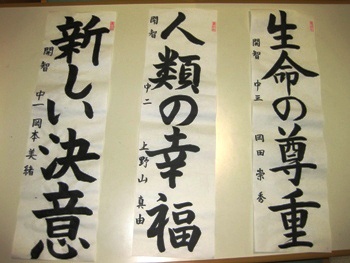 生命の尊重
開智 中三 岡田 崇秀
人類の幸福
開智 中二 上野山 真由
新しい決意
開智 中一 岡本 美緒